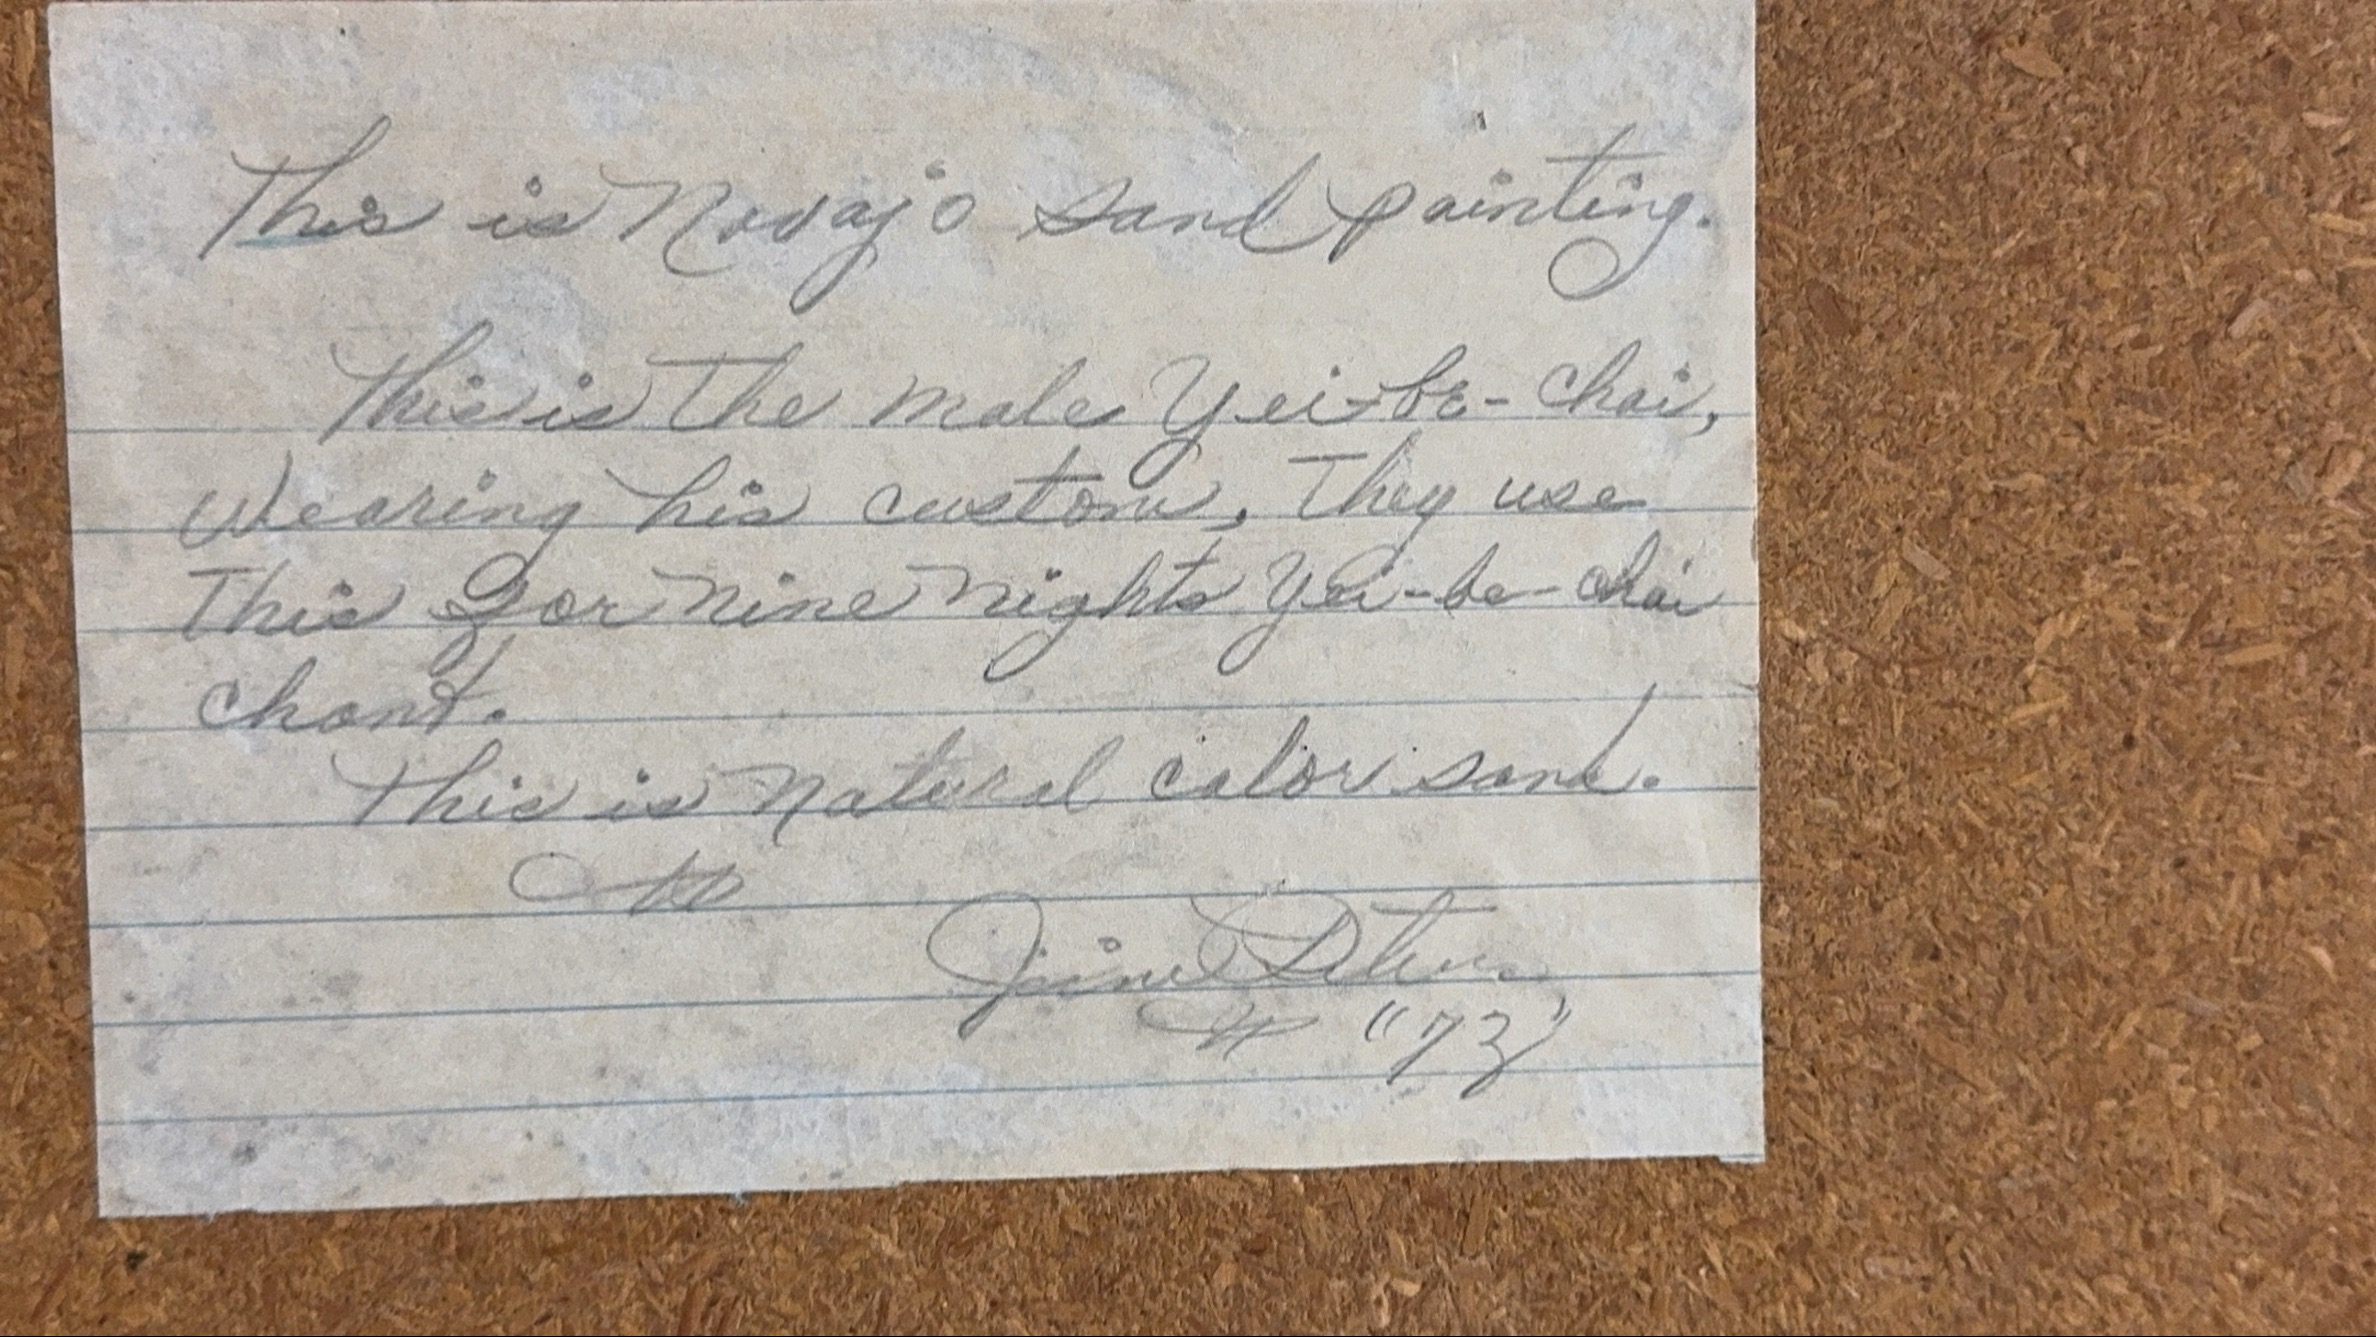 This is Navajo sand painting.
This is the male Yei-be-chai,
Wearing his custom, They use
This for nine nights Yei-be-chai
chant.
This is natural color sand.
"73"